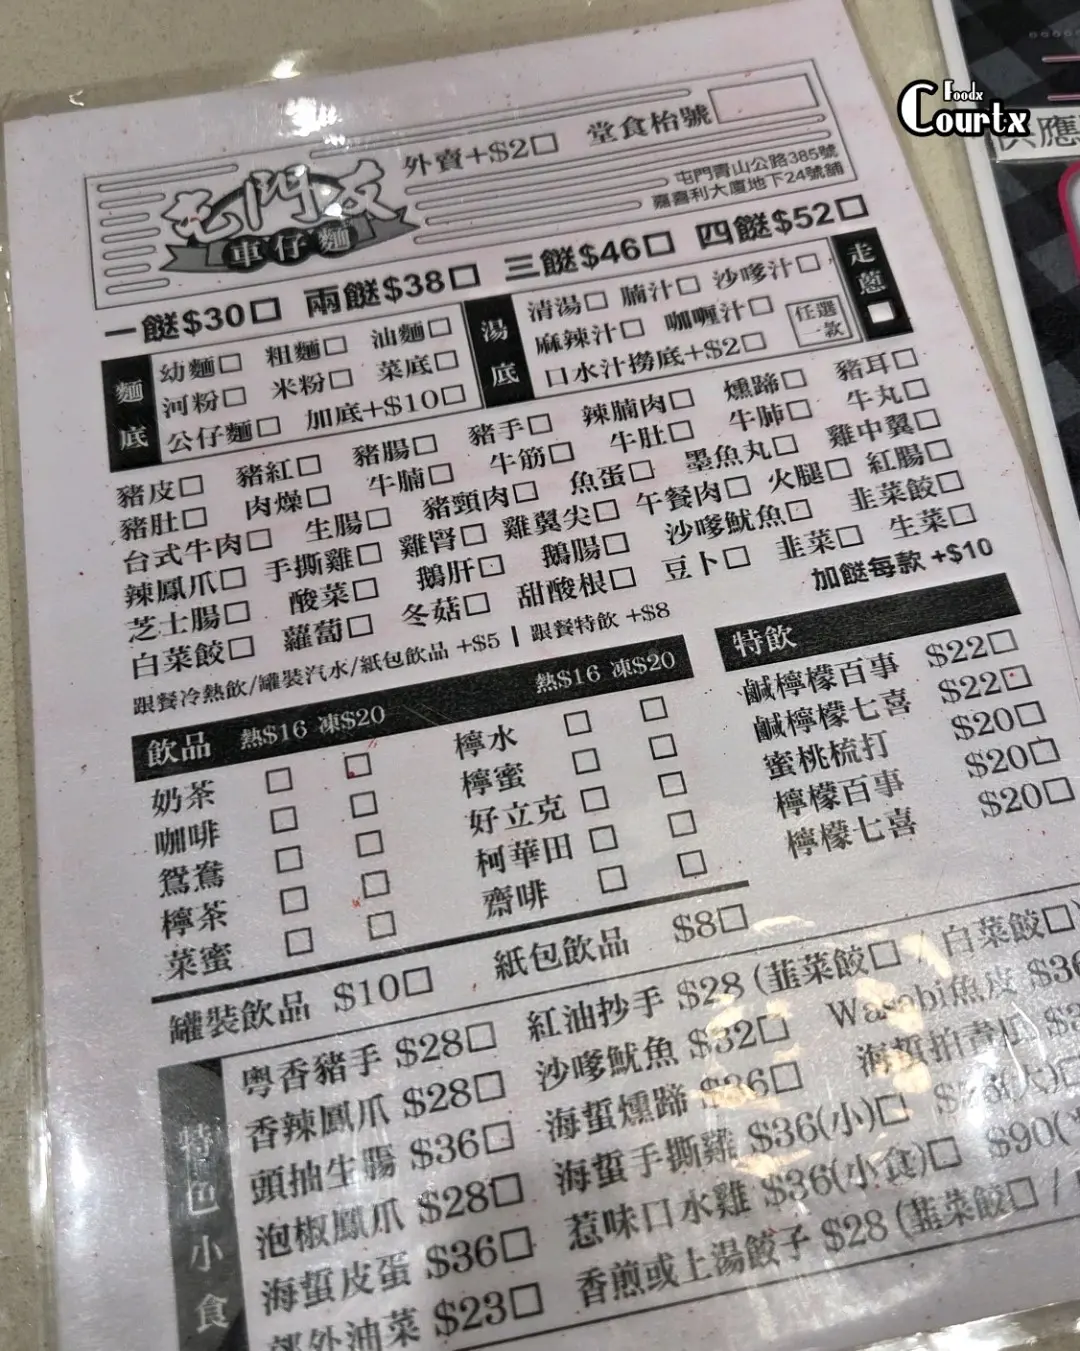 Foodx
Courtx
供應
外賣+$2□ 堂食枱號
屯門友
車仔麵
屯門青山公路385號
嘉喜利大廈地下24號舖
一餸$30□ 兩餸$38□ 三餸$46□ 四餸$52□
麵底
幼麵□ 粗麵□ 油麵□
河粉□ 米粉□ 菜底□
公仔麵□ 加底+$10□
湯底
清湯□ 腩汁□ 沙嗲汁□
麻辣汁□ 咖喱汁□
口水汁撈底+$2□
任選一款
走蔥□
豬皮□ 豬紅□ 豬腸□ 豬手□ 辣腩肉□ 燻蹄□ 豬耳□
豬肚□ 肉燥□ 牛腩□ 牛筋□ 牛肚□ 牛肺□ 牛丸□
台式牛肉□ 生腸□ 豬頸肉□ 魚蛋□ 墨魚丸□ 雞中翼□
辣鳳爪□ 手撕雞□ 雞腎□ 雞翼尖□ 午餐肉□ 火腿□ 紅腸□
芝士腸□ 酸菜□ 鵝肝□ 鵝腸□ 沙嗲魷魚□ 韭菜餃□
白菜餃□ 蘿蔔□ 冬菇□ 甜酸根□ 豆卜□ 韭菜□ 生菜□
加餸每款 +$10
跟餐冷熱飲/罐裝汽水/紙包飲品 +$5 | 跟餐特飲 +$8
飲品 熱$16 凍$20 熱$16 凍$20
奶茶 □ □ 檸水 □ □
咖啡 □ □ 檸蜜 □ □
鴛鴦 □ □ 好立克 □ □
檸茶 □ □ 柯華田 □ □
菜蜜 □ □ 齋啡 □ □
特飲
鹹檸檬百事 $22□
鹹檸檬七喜 $22□
蜜桃梳打 $20□
檸檬百事 $20□
檸檬七喜 $20□
罐裝飲品 $10□ 紙包飲品 $8□
特色小食
粵香豬手 $28□ 紅油抄手 $28 (韭菜餃□ / 白菜餃□)
香辣鳳爪 $28□ 沙嗲魷魚 $32□ Wasabi魚皮 $36
頭抽生腸 $36□ 海蜇燻蹄 $36□ 海蜇拍青瓜
泡椒鳳爪 $28□ 海蜇手撕雞 $36(小)□ (大)□
海蜇皮蛋 $36□ 惹味口水雞 $36(小食)□ $90(
郊外油菜 $23□ 香煎或上湯餃子 $28 (韭菜餃□ /